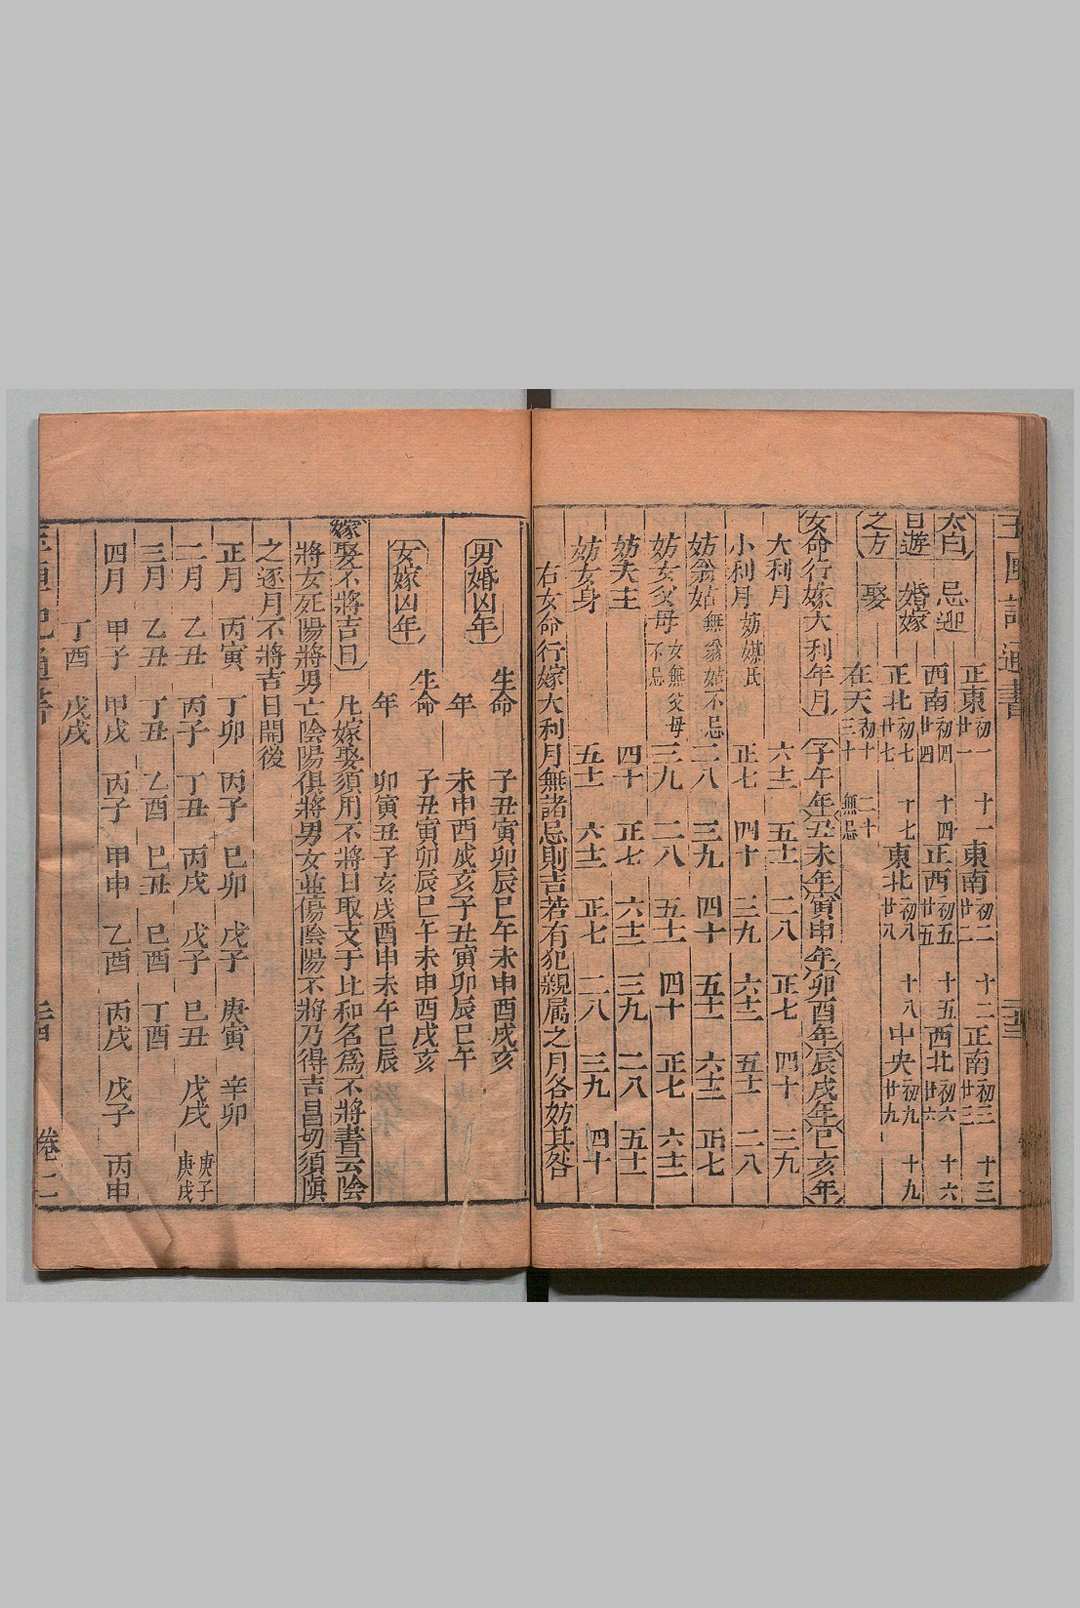 太白 忌迎
日遊 婚嫁
之方 娶
正東 初一 十一 廿一 東南 初二 十二 廿二 正南 初三 十三 廿三
西南 初四 十四 廿四 正西 初五 十五 廿五 西北 初六 十六 廿六
正北 初七 十七 廿七 東北 初八 十八 廿八 中央 初九 十九 廿九
在天 初十 二十 三十 無忌
女命行嫁大利年月 子午年 丑未年 寅申年 卯酉年 辰戌年 巳亥年
大利月 六十二 五十一 二八 正七 四十 三九
小利月 妨媒氏 正七 四十 三九 六十二 五十一 二八
妨翁姑 無翁姑不忌 二八 三九 四十 五十一 六十二 正七
妨女父母 女無父母不忌 三九 二八 五十一 四十 正七 六十二
妨夫主 四十 正七 六十二 三九 二八 五十一
妨女身 五十一 六十二 正七 二八 三九 四十
右女命行嫁大利月無諸忌則吉若有犯親属之月各妨其咎
男婚凶年
生命 子丑寅卯辰巳午未申酉戌亥
年 未申酉戌亥子丑寅卯辰巳午
女嫁凶年
生命 子丑寅卯辰巳午未申酉戌亥
年 卯寅丑子亥戌酉申未午巳辰
嫁娶不將吉日 凡嫁娶須用不將日取支干比和名爲不將書云陰
將女死陽將男亡陰陽俱將男女並傷陰陽不將乃得吉昌切須愼
之逐月不將吉日開後
正月 丙寅 丁卯 丙子 己卯 戊子 庚寅 辛卯
二月 乙丑 丙子 丁丑 丙戌 戊子 己丑 戊戌 庚子 庚戌
三月 乙丑 丁丑 乙酉 己丑 己酉 丁酉
四月 甲子 甲戌 丙子 甲申 乙酉 丙戌 戊子 丙申
丁酉 戊戌
卷二